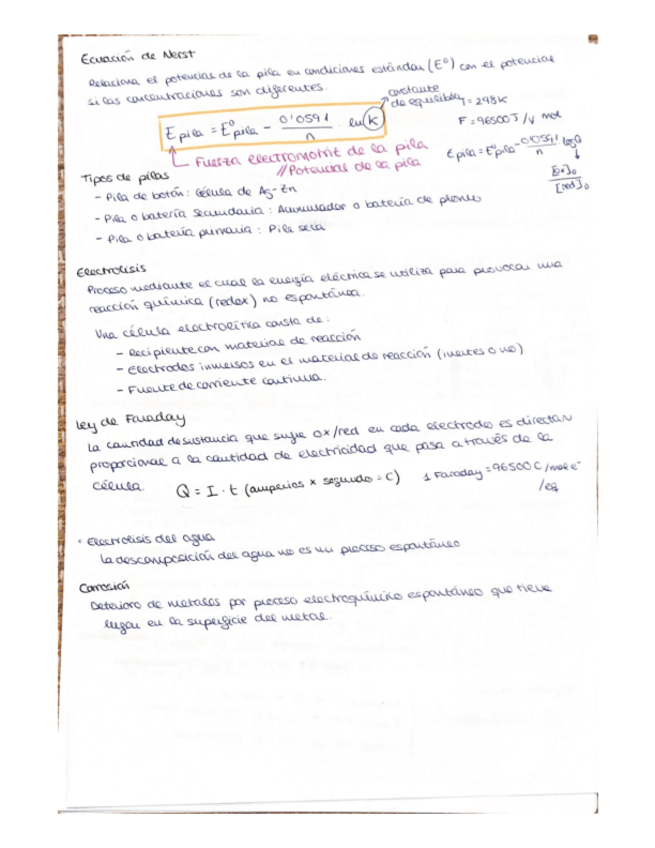 Ecuación de Nerst
Relaciona el potencial de la pila en condiciones estándar (E°) con el potencial
si las concentraciones son diferentes.
constante
de equilibrio
T = 298K
F = 96500 J/V mol
E pila = E°pila - 0'0591/n · ln K
Fuerza electromotriz de la pila
// Potencial de la pila
Epila = E°pila - 0'0591/n log Q
[Ox]o
[red]o
Tipos de pilas
- Pila de botón: Célula de Ag-Zn
- Pila o batería secundaria: Acumulador o batería de plomo
- Pila o batería primaria: Pila seca
Electrolisis
Proceso mediante el cual la energía eléctrica se utiliza para provocar una
reacción química (redox) no espontánea.
Una célula electrolítica consta de:
- Recipiente con material de reacción
- Electrodos inmersos en el material de reacción (inertes o no)
- Fuente de corriente continua.
Ley de Faraday
La cantidad de sustancia que sufre ox/red en cada electrodo es directam
proporcional a la cantidad de electricidad que pasa a través de la
célula.
Q = I · t (amperios x segundo = C)
1 Faraday = 96500 C/mol e-
/eq
· Electrolisis del agua
La descomposición del agua no es un proceso espontáneo
Corrosión
Deterioro de metales por proceso electroquímico espontáneo que tiene
lugar en la superficie del metal.